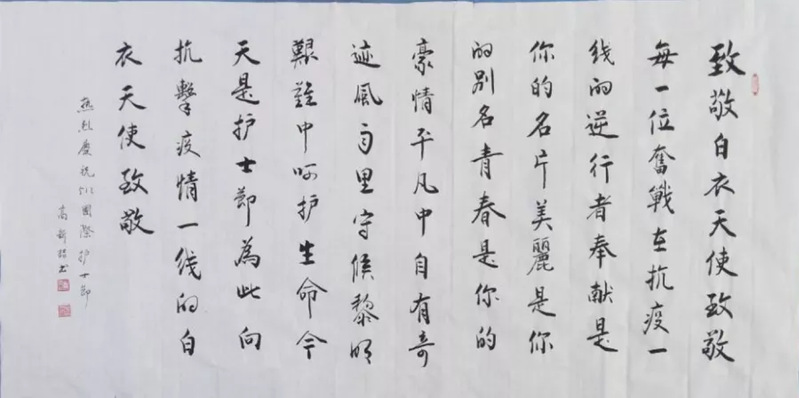 致敬白衣天使致敬
每一位奮戰在抗疫一
线的逆行者奉献是
你的名片美麗是你
的别名青春是你的
豪情平凡中自有奇
迹風雨里守候黎明
艱難中呵护生命今
天是护士節為此向
抗擊疫情一线的白
衣天使致敬
热烈慶祝512國際护士節
高 书